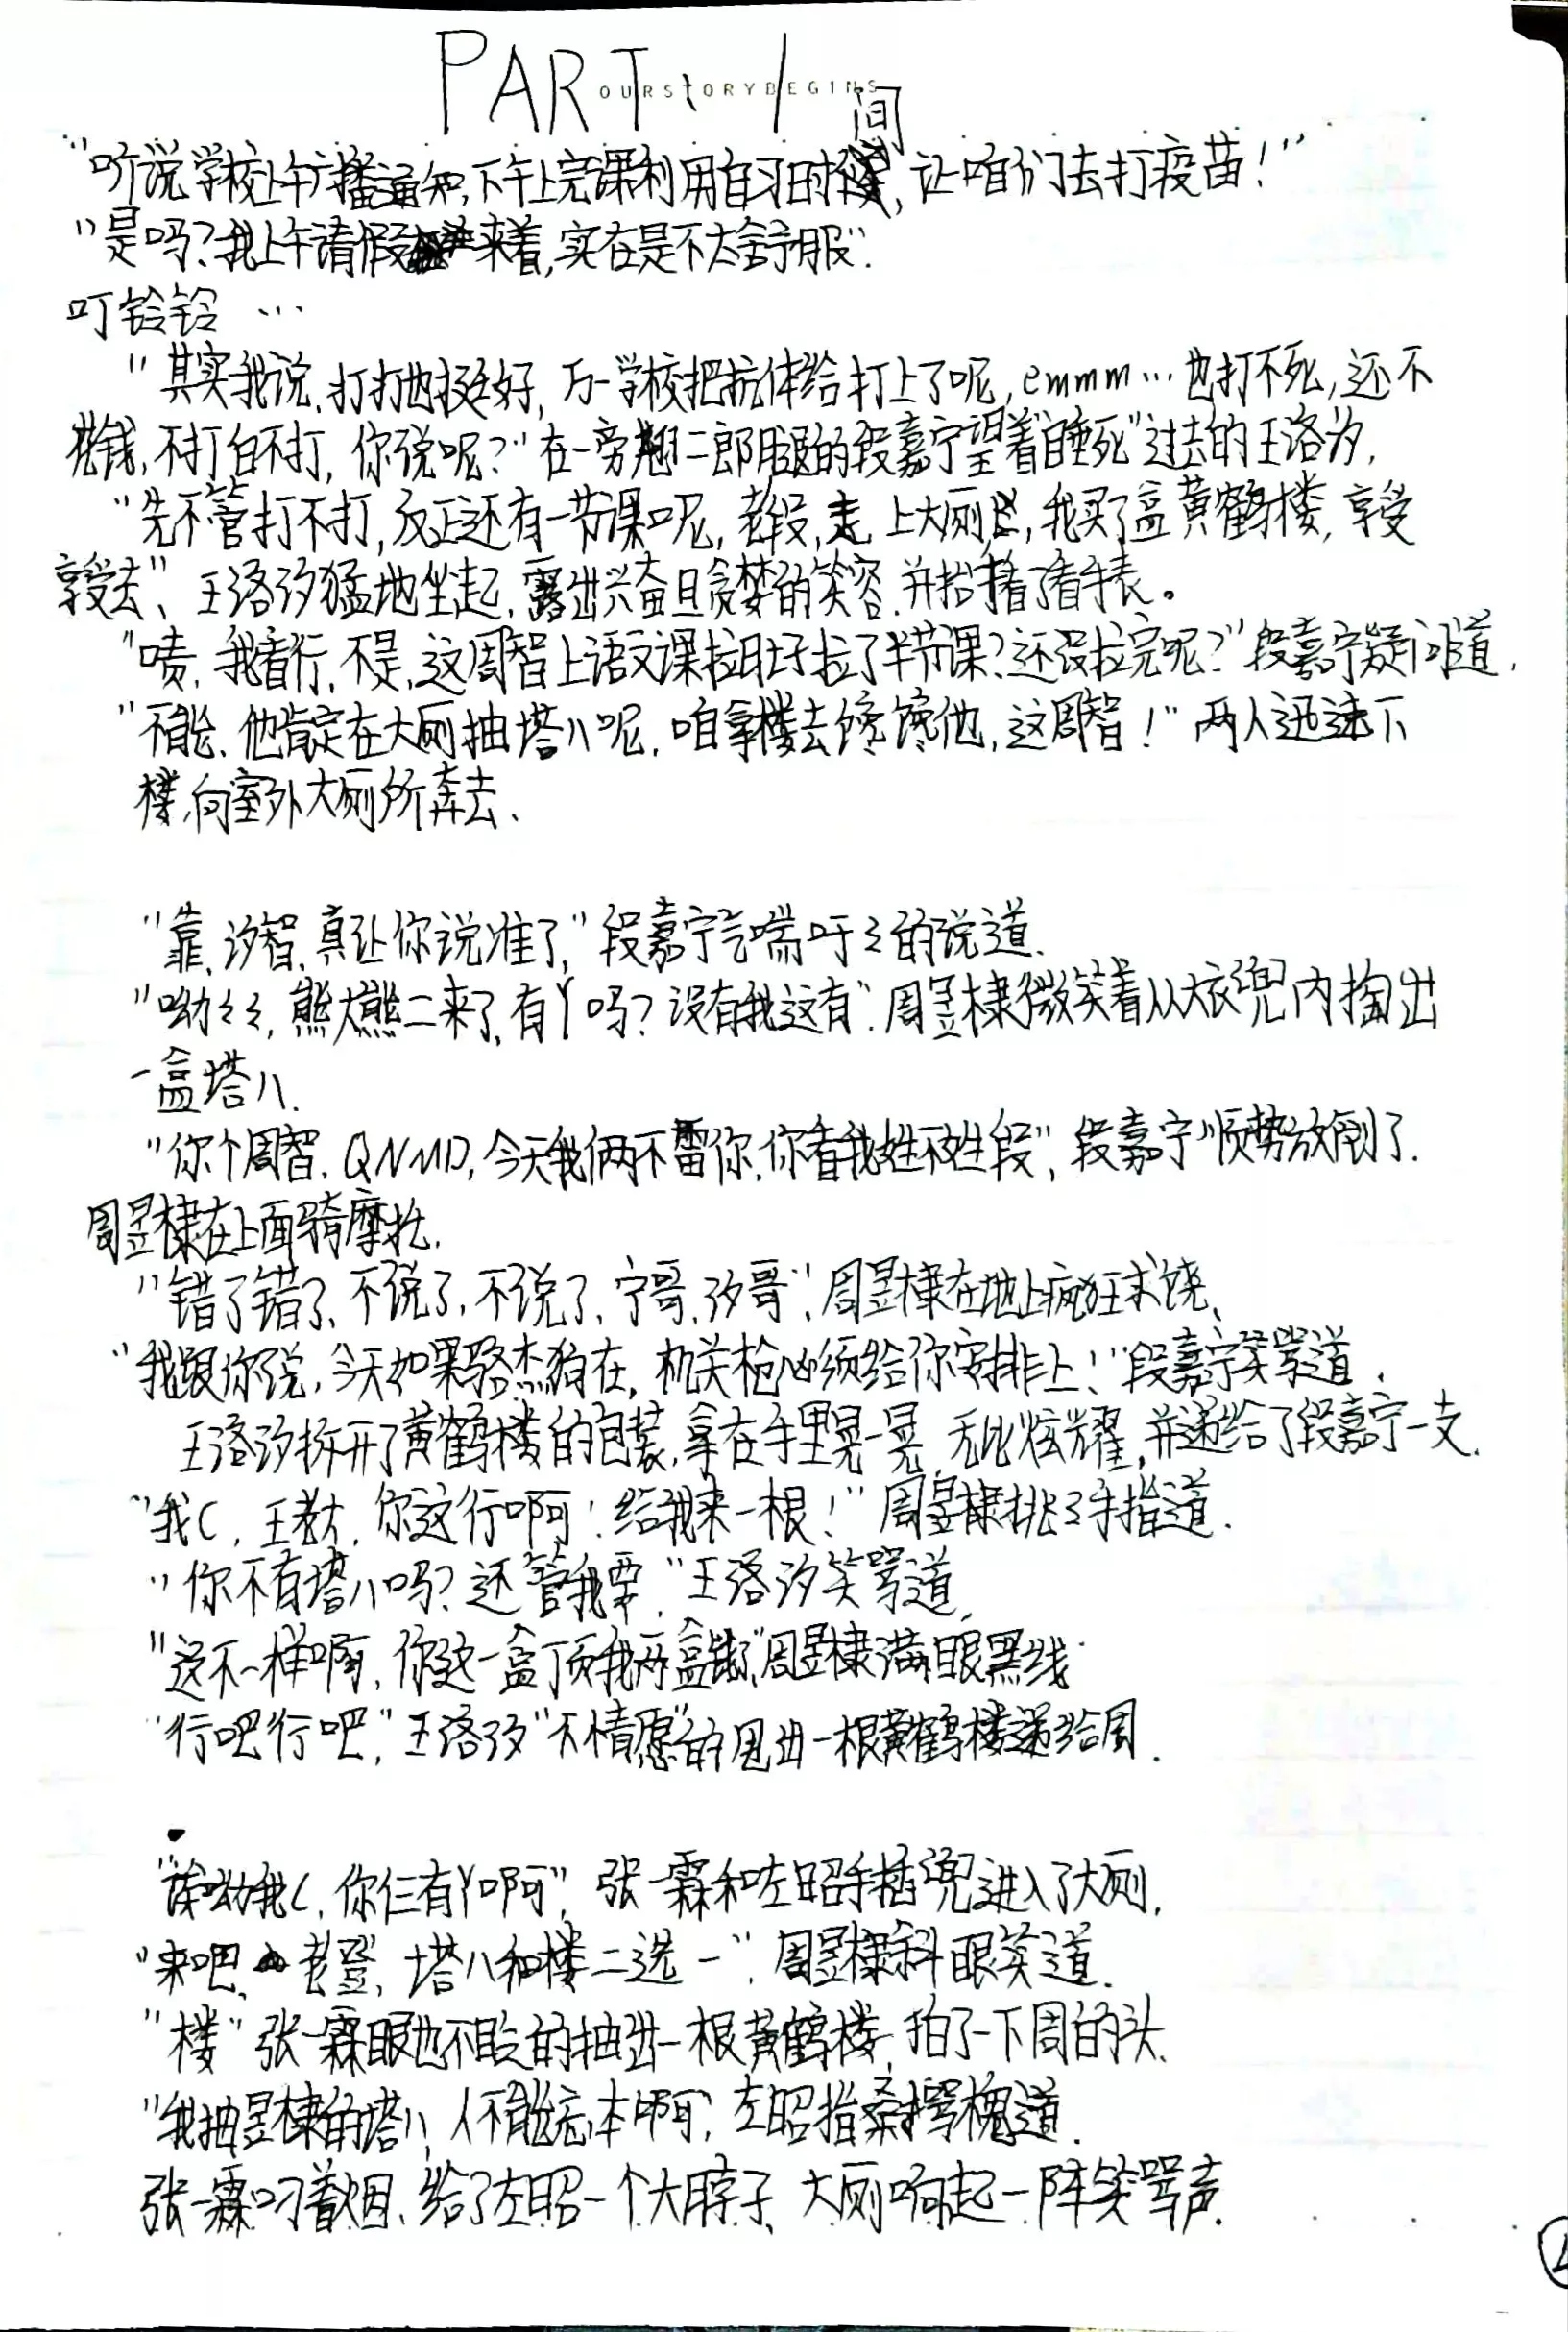 PART. 1
OURSTORYBEGINS
间
"听说学校上午广播通知,下午上完课利用自习时,让咱们去打疫苗!"
"是吗?我上午请假来着,实在是不太舒服".
叮铃铃 …
"其实我说,打打也挺好,万一学校把抗体给打上了呢,emmm…也打不死,还不
花钱,不打白不打,你说呢?"在一旁翘二郎腿的段嘉宁望着"睡死"过去的王洛汐,
"先不管打不打,反正还有一节课呢,老段,走,上大厕,我买了盒黄鹤楼,享受
享受去",王洛汐猛地坐起,露出兴奋且贪婪的笑容,并抬手看了看手表。
"啧,我看行,不是,这周智上语文课拉肚子拉了半节课?还没拉完呢?"段嘉宁疑问道,
"不能,他肯定在大厕抽塔八呢,咱拿楼去馋馋他,这周智!"两人迅速下
楼,向室外大厕所奔去、
"靠,汐智,真让你说准了,"段嘉宁气喘吁々的说道、
"呦々々,熊大熊二来了,有丫吗?没有我这有".周昱棣微笑着从大衣兜内掏出
一盒塔八.
"你个周智,QNMD,今天我俩不雷你,你看我姓不姓段",段嘉宁顺势放倒了.
周昱棣在上面骑摩托.
"错了错了、不说了,不说了、宁哥,汐哥",周昱棣在地上疯狂求饶、
"我跟你说,今天如果骆杰狗在,机关枪必须给你安排上!"段嘉宁笑骂道.
王洛汐拆开了黄鹤楼的包装,拿在手里晃一晃,无比炫耀,并递给了段嘉宁一支.
"我C,王老大,你这行啊!给我来一根!"周昱棣挑了手指道.
"你不有塔八吗?还管我要,"王洛汐笑骂道,
"这不一样啊,你这一盒顶我两盒"周昱棣满眼黑线.
"行吧行吧,"王洛汐"不情愿"的甩出一根黄鹤楼递给周.
"诶呦我C,你仨有丫啊",张一霖和左昭手插兜进入了大厕,
"来吧,老登,塔八和楼二选一".周昱棣斜眼笑道.
"楼"张一霖眼也不眨的抽出一根黄鹤楼,拍了一下周的头.
"我抽昱棣的塔八,人不能忘本啊",左昭指桑骂槐道.
张一霖叼着烟,给了左昭一个大脖子、大厕响起一阵笑骂声.